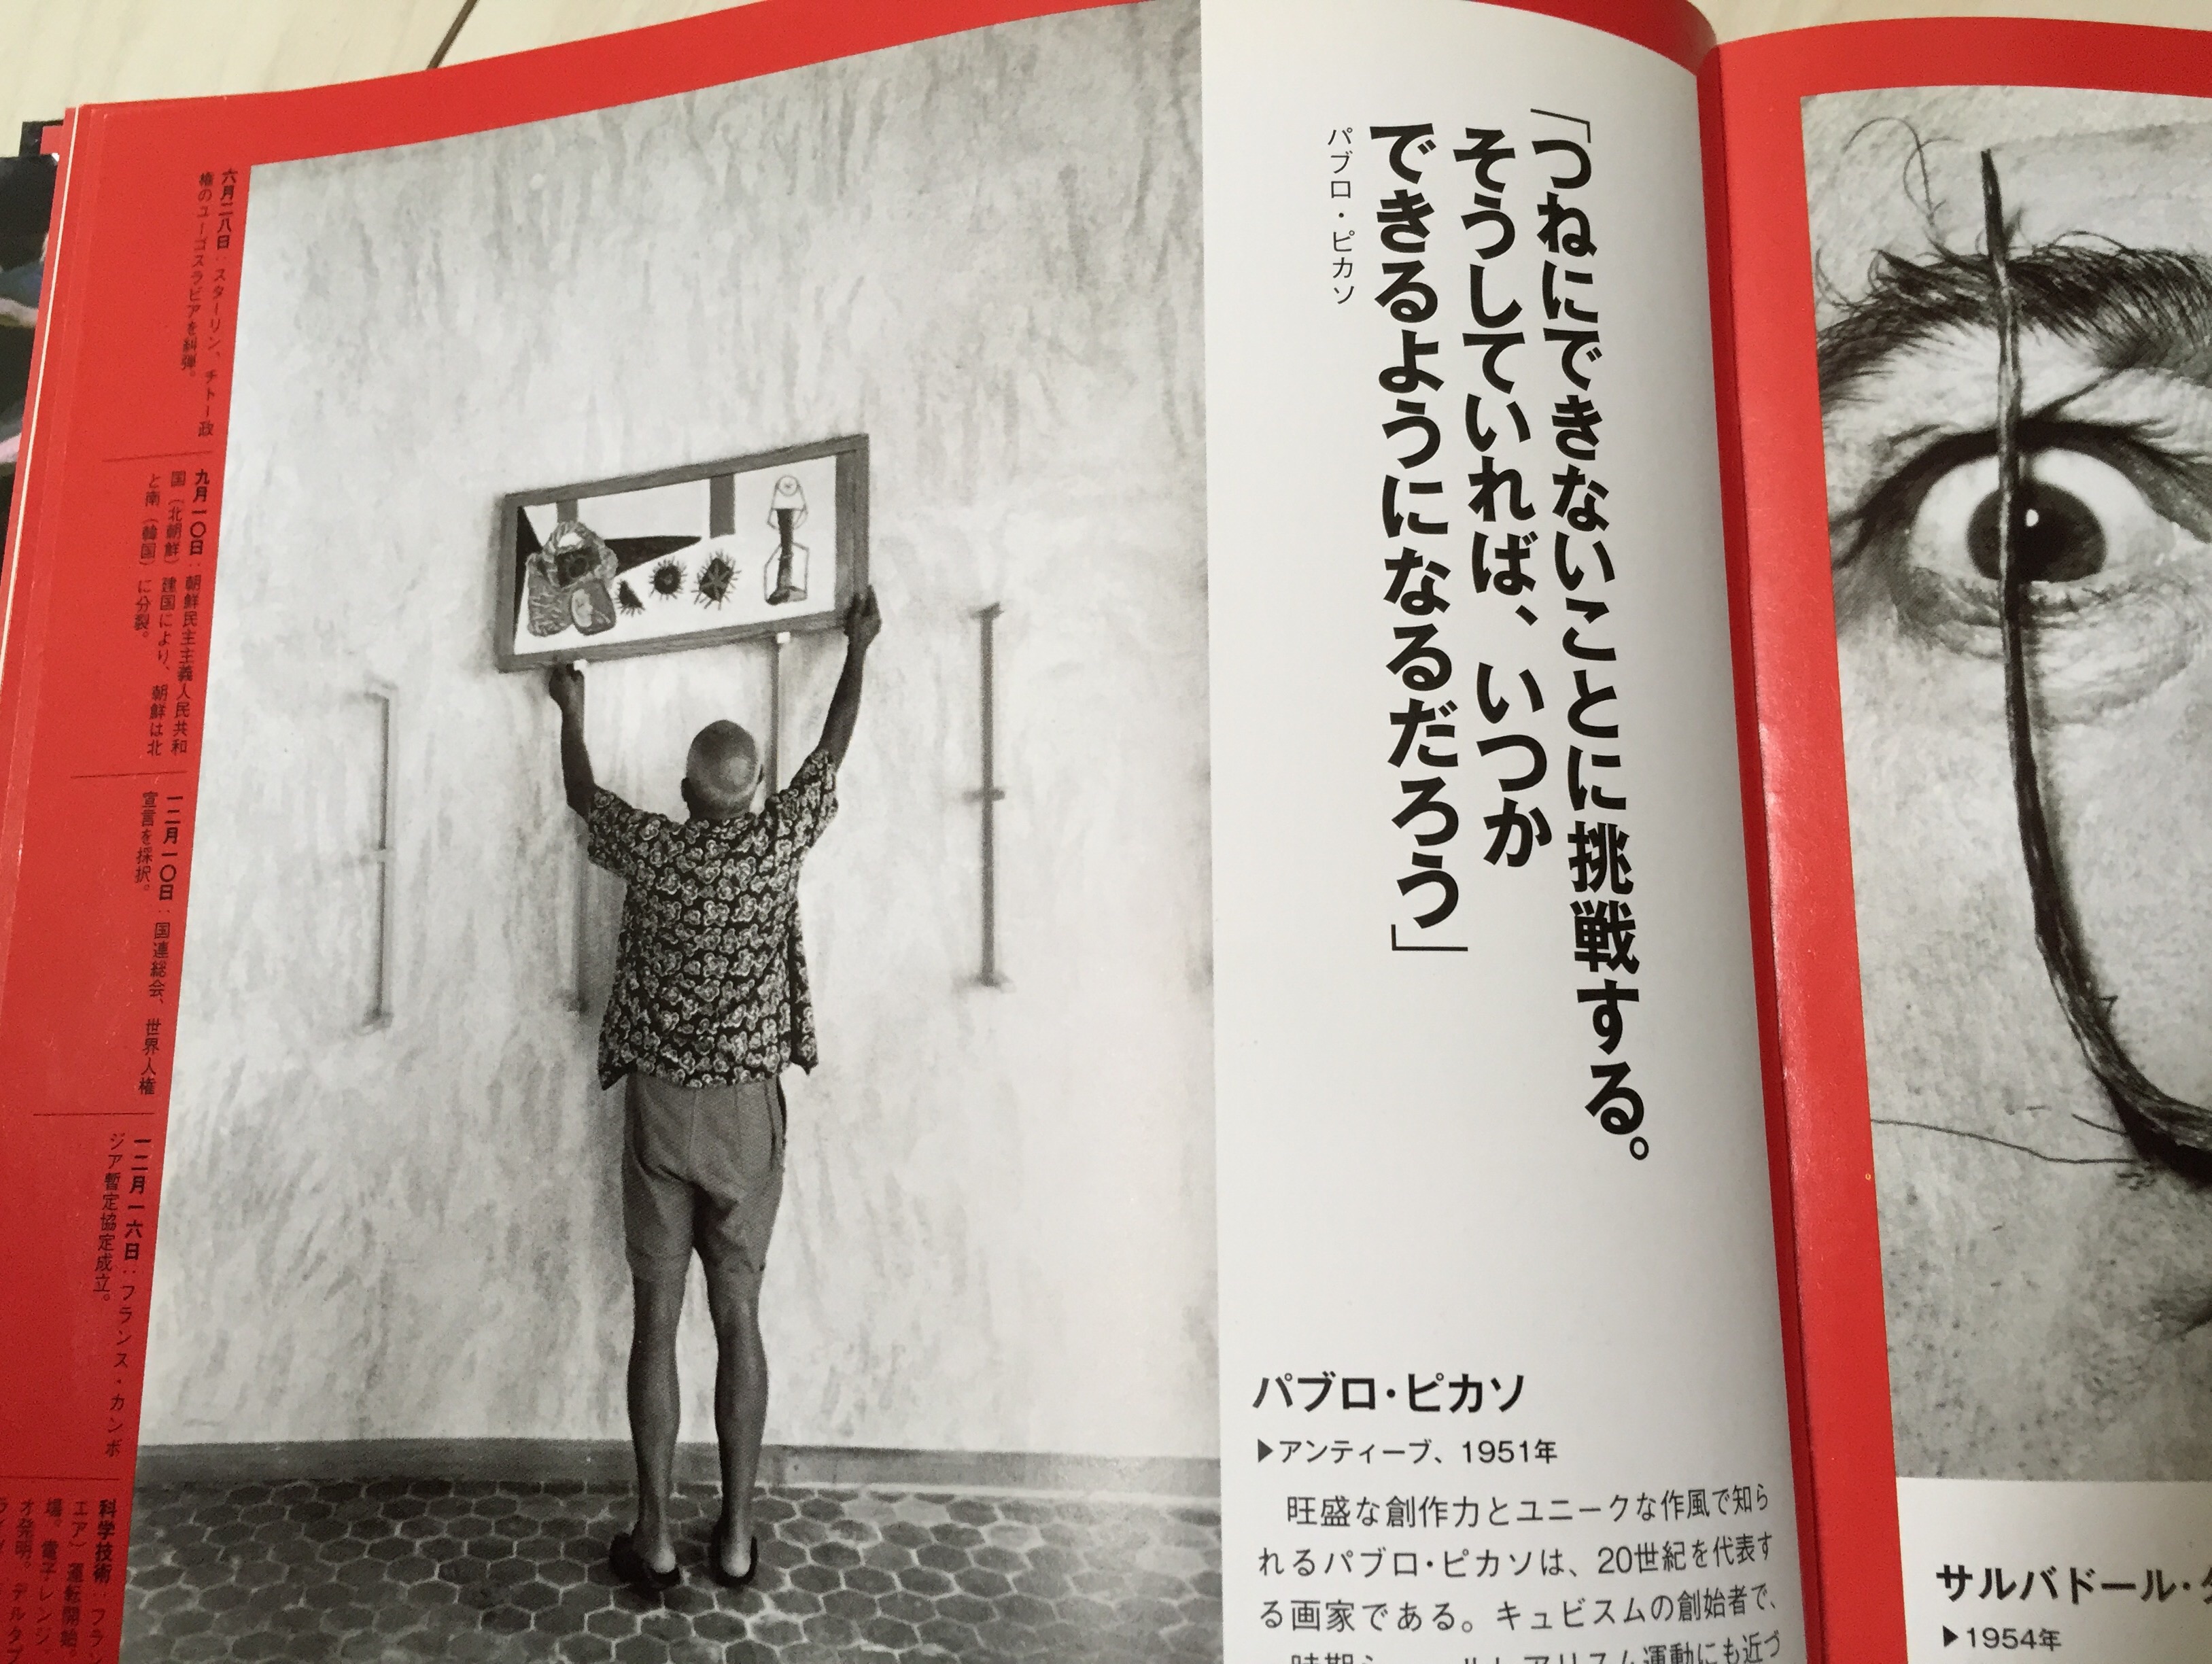 「つねにできないことに挑戦する。
そうしていれば、いつか
できるようになるだろう」
パブロ・ピカソ
パブロ・ピカソ
▶アンティーブ、1951年
旺盛な創作力とユニークな作風で知ら
れるパブロ・ピカソは、20世紀を代表す
る画家である。キュビスムの創始者で、
運動にも近づ
六月二八日：スターリン、チトー政
権のユーゴスラビアを糾弾。
九月一〇日：朝鮮民主主義人民共和
国（北朝鮮）建国により、朝鮮は北
と南（韓国）に分裂。
一二月一〇日：国連総会、世界人権
宣言を採択。
一二月一六日：フランス・カンボ
ジア暫定協定成立。
科学技術：フラン
エア）運転開始。
場。電子レンジ、
オ発明。デルタプ
サルバドール・
▶1954年